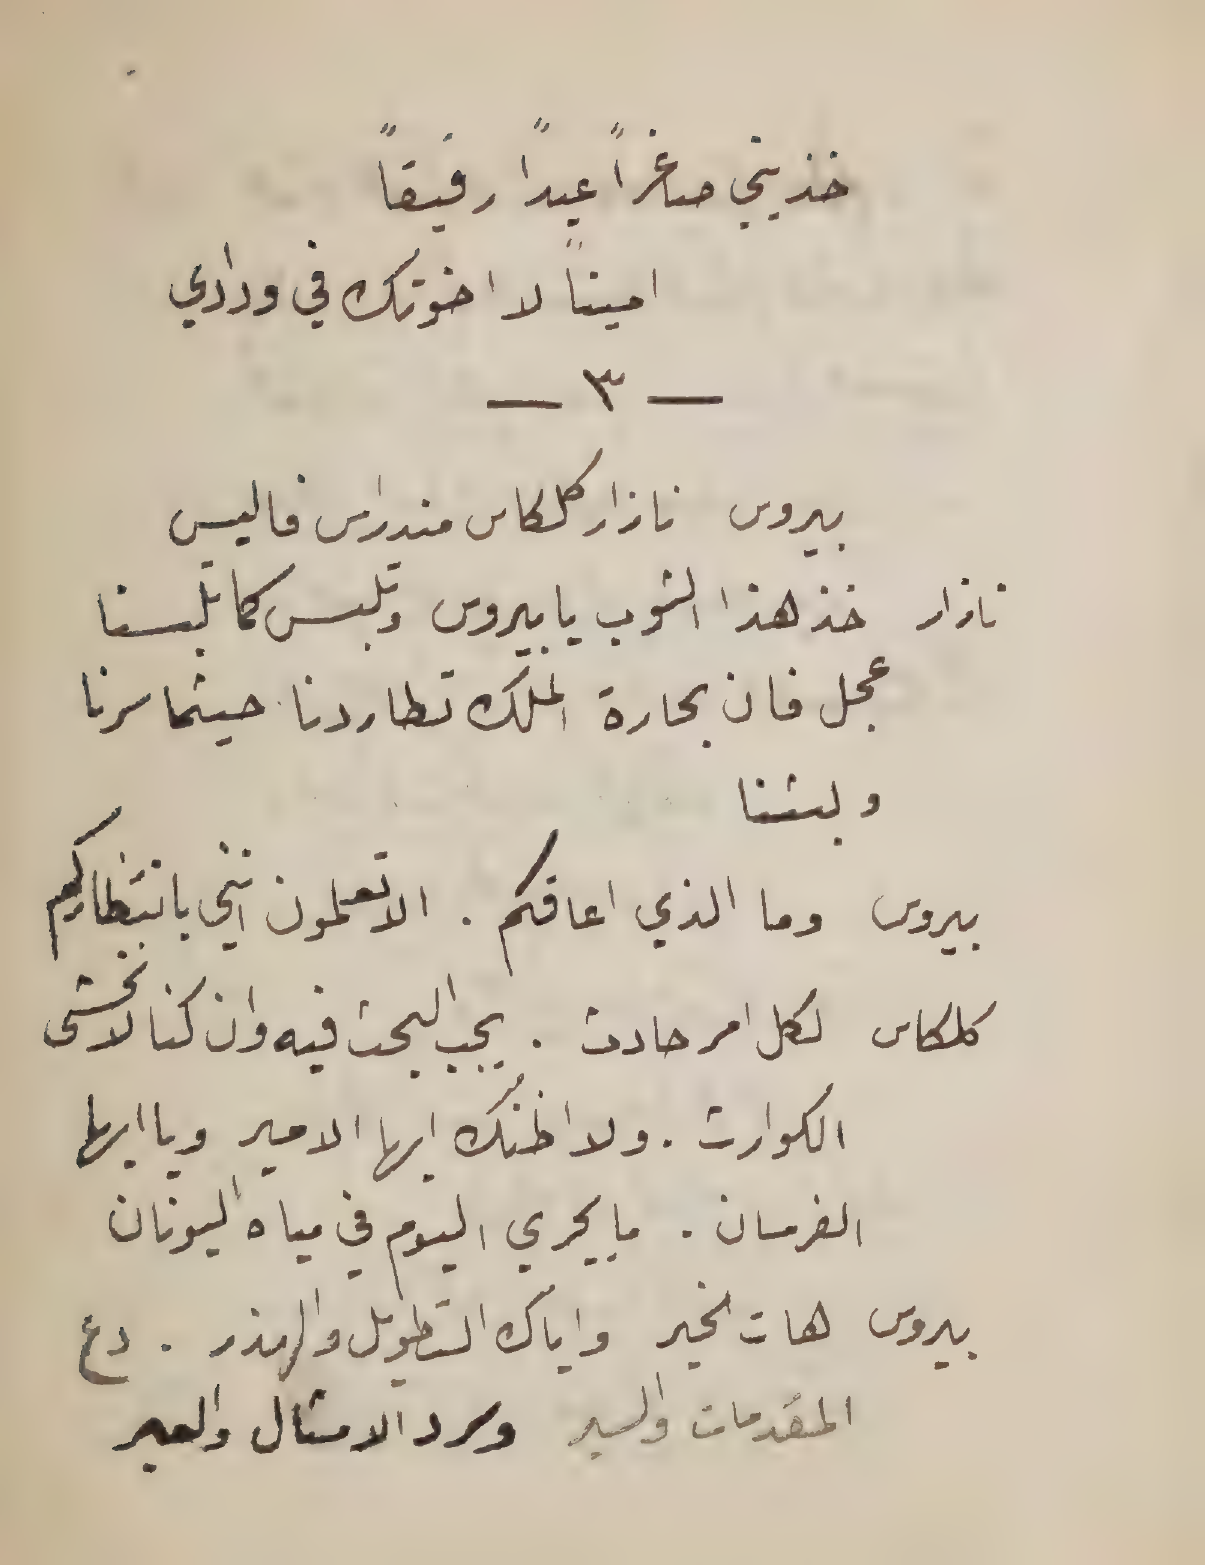 خذيني صاغراً عبداً رفيقاً
اميناً لا اخونك في ودادي
— ٣ —
بيروس نازار كلكاس مندراس فاليس
نازار خذ هذا الثوب يا بيروس وتلبس كما تلبسنا
عجل فان بحارة الملك تطاردنا حيثما سرنا
ولبثنا
بيروس وما الذي اعاقكم . الا تعلمون انني بانتظاركم
كلكاس لكل امر حادث . يجب البحث فيه وان كنا لا نخشى
الكوارث . ولا اظنك ايها الامير ويا ايها
الفرسان . ما يجري اليوم في مياه اليونان
بيروس هات الخبر واياك التطويل والهذر . دع
المقدمات والسير وسرد الامثال والعبر